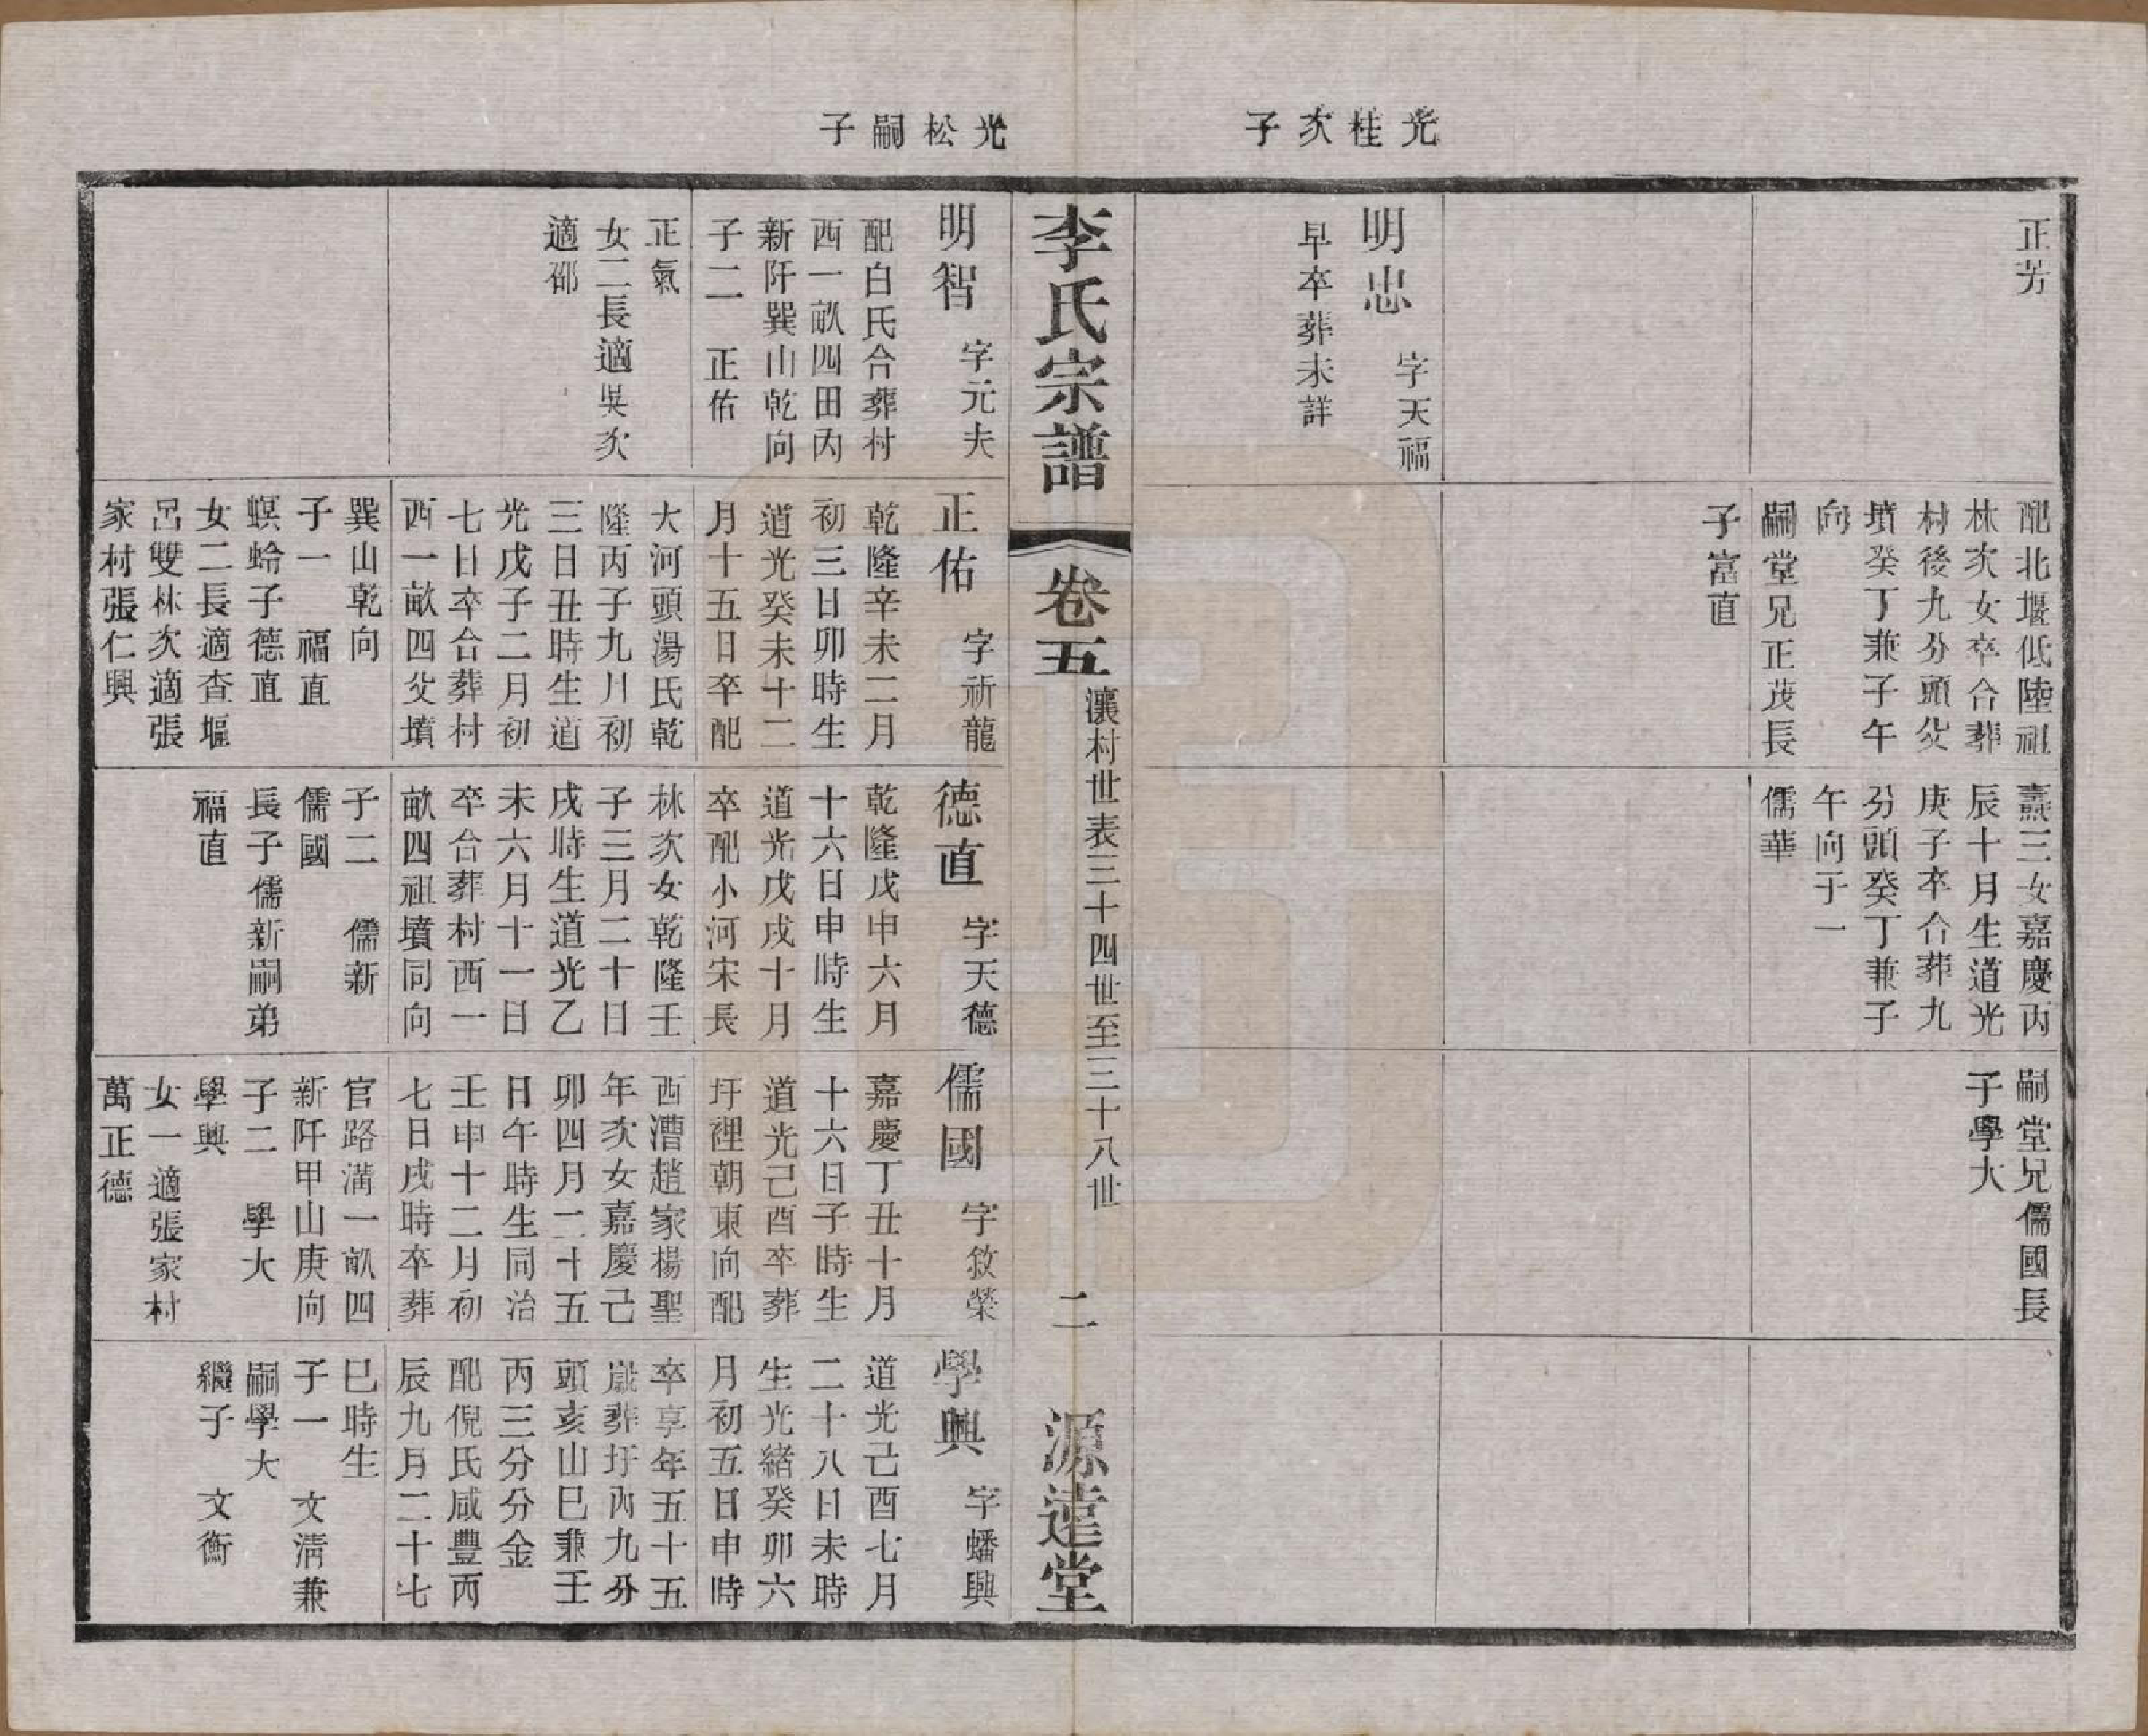 光桂次子
正芳
明忠
字天福
早卒葬未詳
配北堰低陸祖
林次女卒合葬
村後九分頭父
墳癸丁兼子午
向
嗣堂兄正茂長
子富直
燾三女嘉慶丙
辰十月生道光
庚子卒合葬九
分頭癸丁兼子
午向子一
儒華
嗣堂兄儒國長
子學大
李氏宗譜
卷五
瀼村世表三十四世至三十八世
二
源遠堂
光松嗣子
明智
字元夫
配白氏合葬村
西一畝四田內
新阡巽山乾向
子二 正佑
正氣
女二長適吳次
適邵
正佑
字祈龍
乾隆辛未二月
初三日卯時生
道光癸未十二
月十五日卒配
大河頭湯氏乾
隆丙子九月初
三日丑時生道
光戊子二月初
七日卒合葬村
西一畝四父墳
巽山乾向
子一 福直
螟蛉子德直
女二長適查堰
呂雙林次適張
家村張仁興
德直
字天德
乾隆戊申六月
十六日申時生
道光戊戌十月
卒配小河宋長
林次女乾隆壬
子三月二十日
戌時生道光乙
未六月十一日
卒合葬村西一
畝四祖墳同向
子二 儒新
儒國
長子儒新嗣弟
福直
儒國
字敘榮
嘉慶丁丑十月
十六日子時生
道光己酉卒葬
圩裡朝東向配
西漕趙家楊聖
年次女嘉慶己
卯四月二十五
日午時生同治
壬申十二月初
七日戌時卒葬
官路溝一畝四
新阡甲山庚向
子二 學大
學興
女一適張家村
萬正德
學興
字蟠興
道光己酉七月
二十八日未時
生光緒癸卯六
月初五日申時
卒享年五十五
歲葬圩內九分
頭亥山巳兼壬
丙三分分金
配倪氏咸豐丙
辰九月二十七
巳時生
子一 文清兼
嗣學大
繼子 文衡